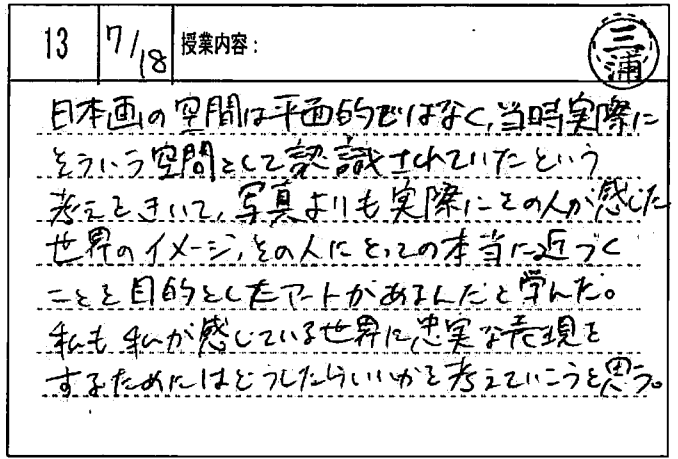 13 7/18 授業内容: 三浦
日本画の空間は平面的ではなく、当時実際に
そういう空間として認識されていたという
考えをきいて、写真よりも実際にその人が感じた
世界のイメージ、その人にとっての本当に近づく
ことを目的としたアートがあるんだと学んだ。
私も私が感じている世界に忠実な表現を
するためにはどうしたらいいかを考えていこうと思う。